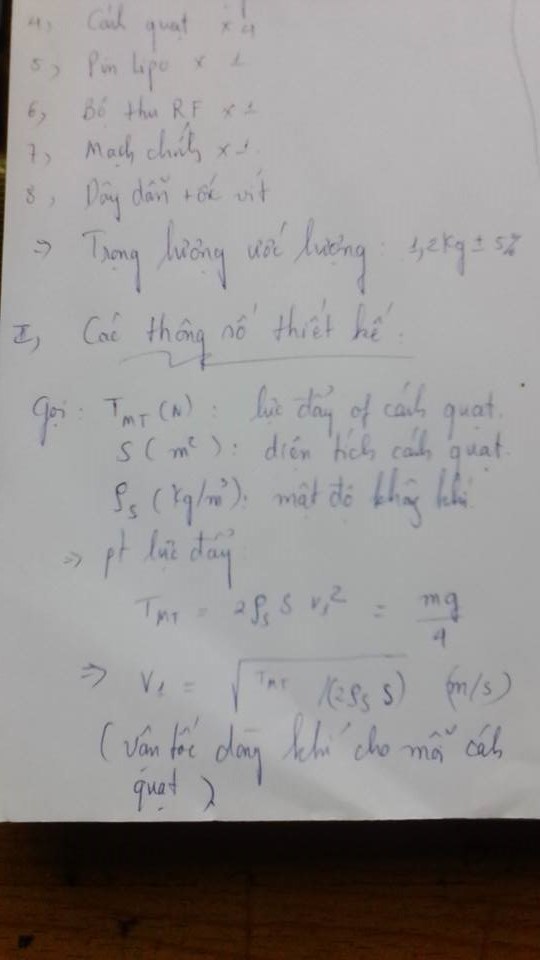 4, Cánh quạt × 4
5, Pin Lipo × 1
6, Bộ thu RF × 1
7, Mạch chính × 1.
8, Dây dẫn + ốc vít
=> Trọng lượng ước lượng: 1,2Kg ± 5%
II, Các thông số thiết kế:
Gọi: T_MT (N): lực đẩy of cánh quạt.
S (m²): diện tích cánh quạt.
ρ_s (Kg/m³): mật độ không khí
=> pt lực đẩy
T_MT = 2ρ_s S V₁² = mg/4
=> V₁ = √(T_MT /(2ρ_s S)) (m/s)
(vận tốc dòng khí cho mỗi cánh
quạt)